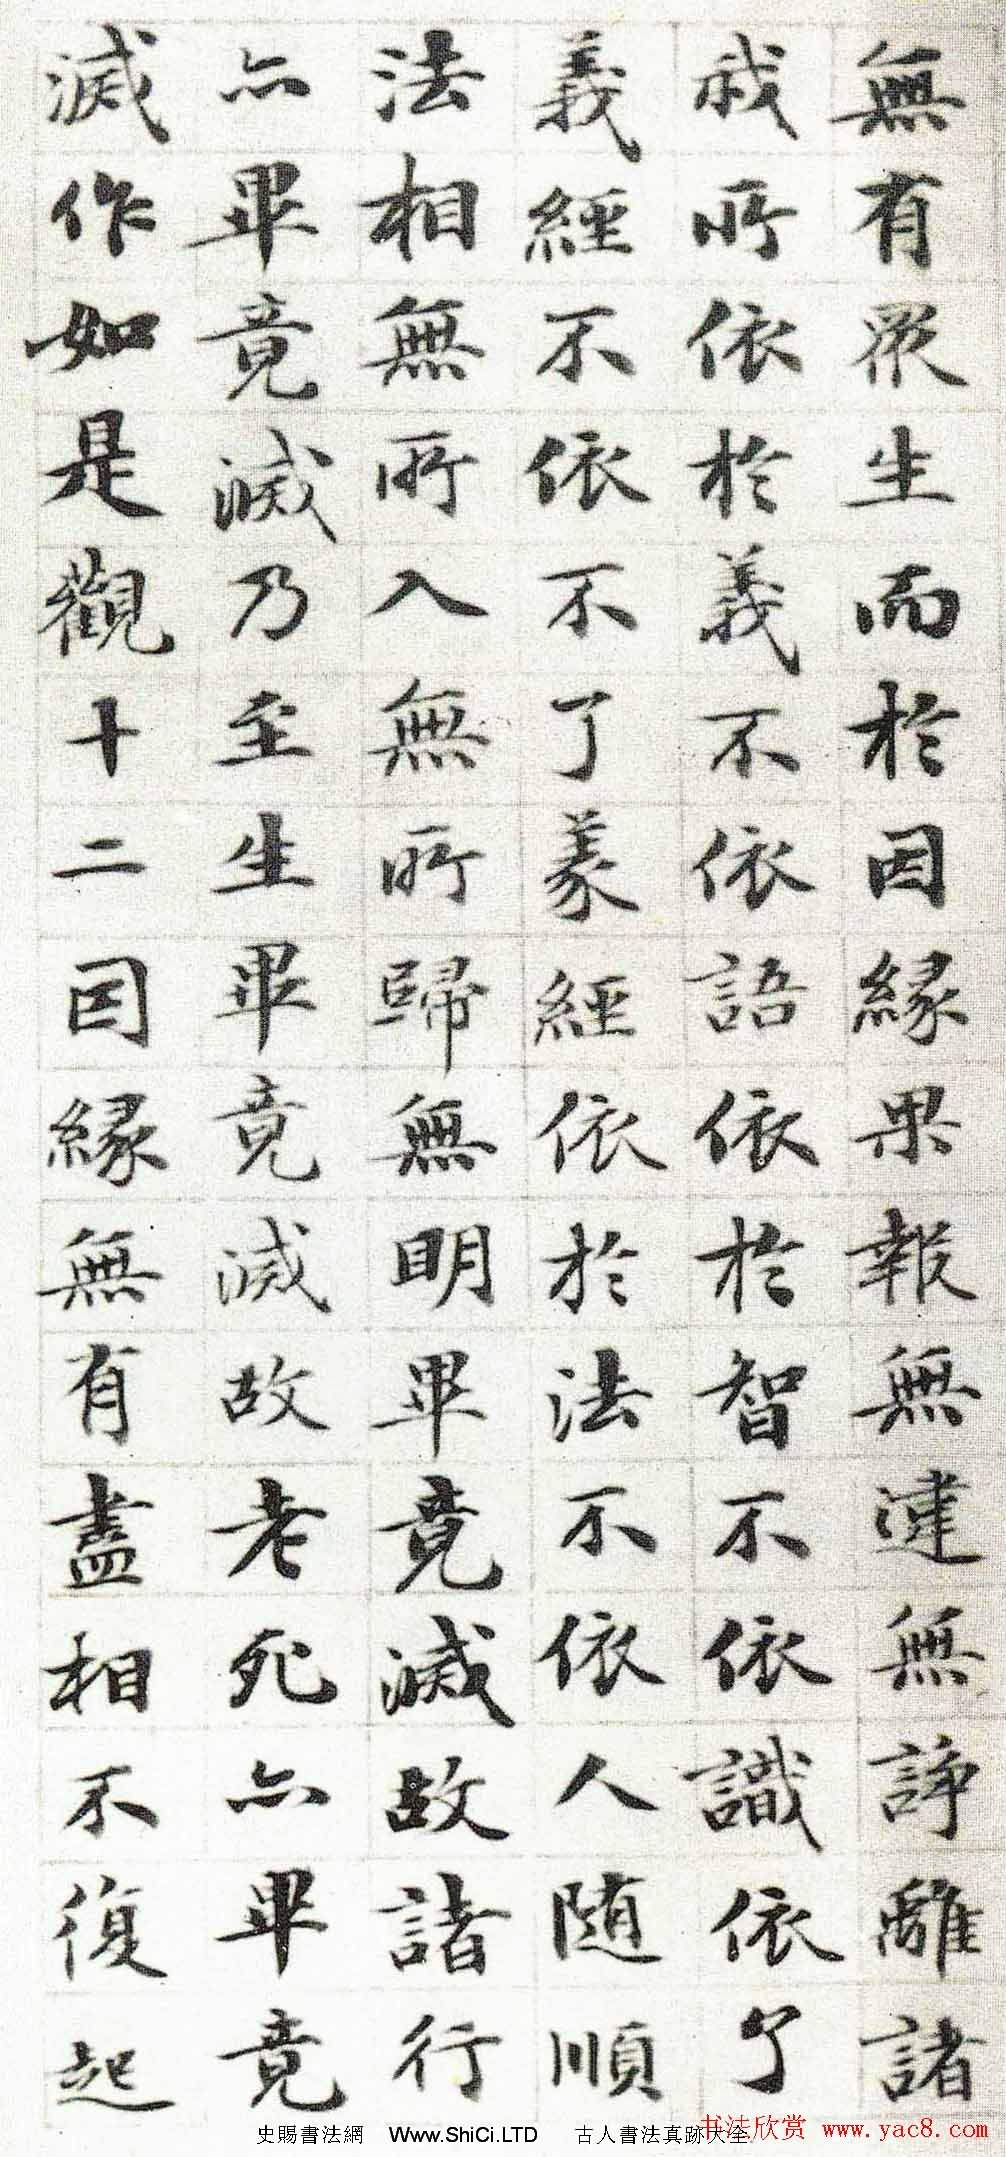 無有眾生而於因緣果報無違無諍離諸
我所依於義不依語依於智不依識依了
義經不依不了義經依於法不依人隨順
法相無所入無所歸無明畢竟滅故諸行
亦畢竟滅乃至生畢竟滅故老死亦畢竟
滅作如是觀十二因緣無有盡相不復起
史賜書法網 Www.ShiCi.LTD 古人書法真跡大全
书法欣赏 www.yac8.com